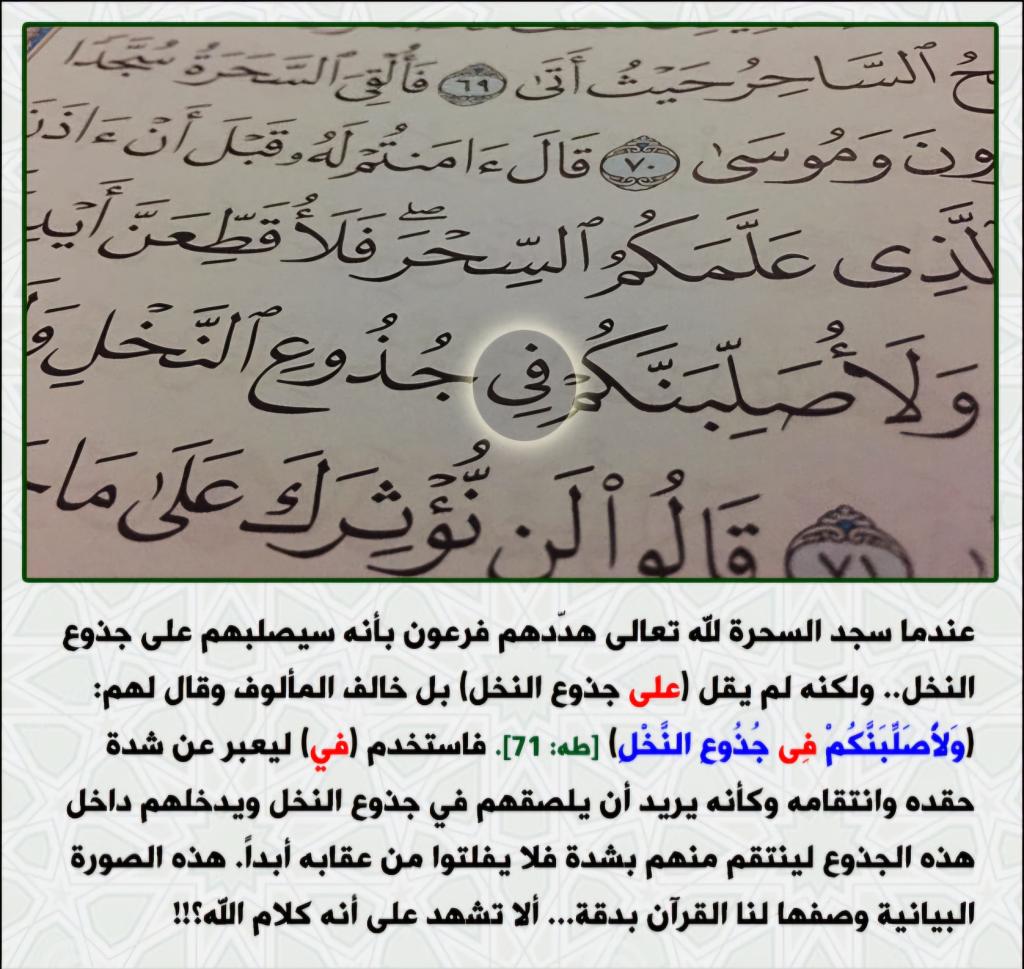 حُ ٱلسَّاحِرُ حَيْثُ أَتَىٰ ٦٩ فَأُلْقِىَ ٱلسَّحَرَةُ سُجَّدًا
ونَ وَمُوسَىٰ ٧٠ قَالَ ءَامَنتُمْ لَهُۥ قَبْلَ أَنْ ءَاذَنَ
ٱلَّذِى عَلَّمَكُمُ ٱلسِّحْرَ ۖ فَلَأُقَطِّعَنَّ أَيْدِ
وَلَأُصَلِّبَنَّكُمْ فِى جُذُوعِ ٱلنَّخْلِ وَلَ
٧١ قَالُوا۟ لَن نُّؤْثِرَكَ عَلَىٰ مَا جَ
عندما سجد السحرة لله تعالى هدّدهم فرعون بأنه سيصلبهم على جذوع
النخل.. ولكنه لم يقل (على جذوع النخل) بل خالف المألوف وقال لهم:
(وَلَأُصَلِّبَنَّكُمْ فِى جُذُوعِ النَّخْلِ) [طه: 71]. فاستخدم (في) ليعبر عن شدة
حقده وانتقامه وكأنه يريد أن يلصقهم في جذوع النخل ويدخلهم داخل
هذه الجذوع لينتقم منهم بشدة فلا يفلتوا من عقابه أبداً. هذه الصورة
البيانية وصفها لنا القرآن بدقة... ألا تشهد على أنه كلام الله؟!!!